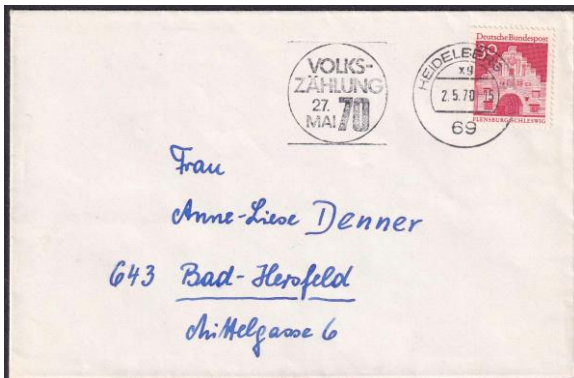 VOLKS-
ZÄHLUNG
27.
MAI 70
HEIDELBERG
xg
2.5.70-15
69
Deutsche Bundespost
30
FLENSBURG/SCHLESWIG
Frau
Anne-Liese Denner
643 Bad-Hersfeld
Mittelgasse 6